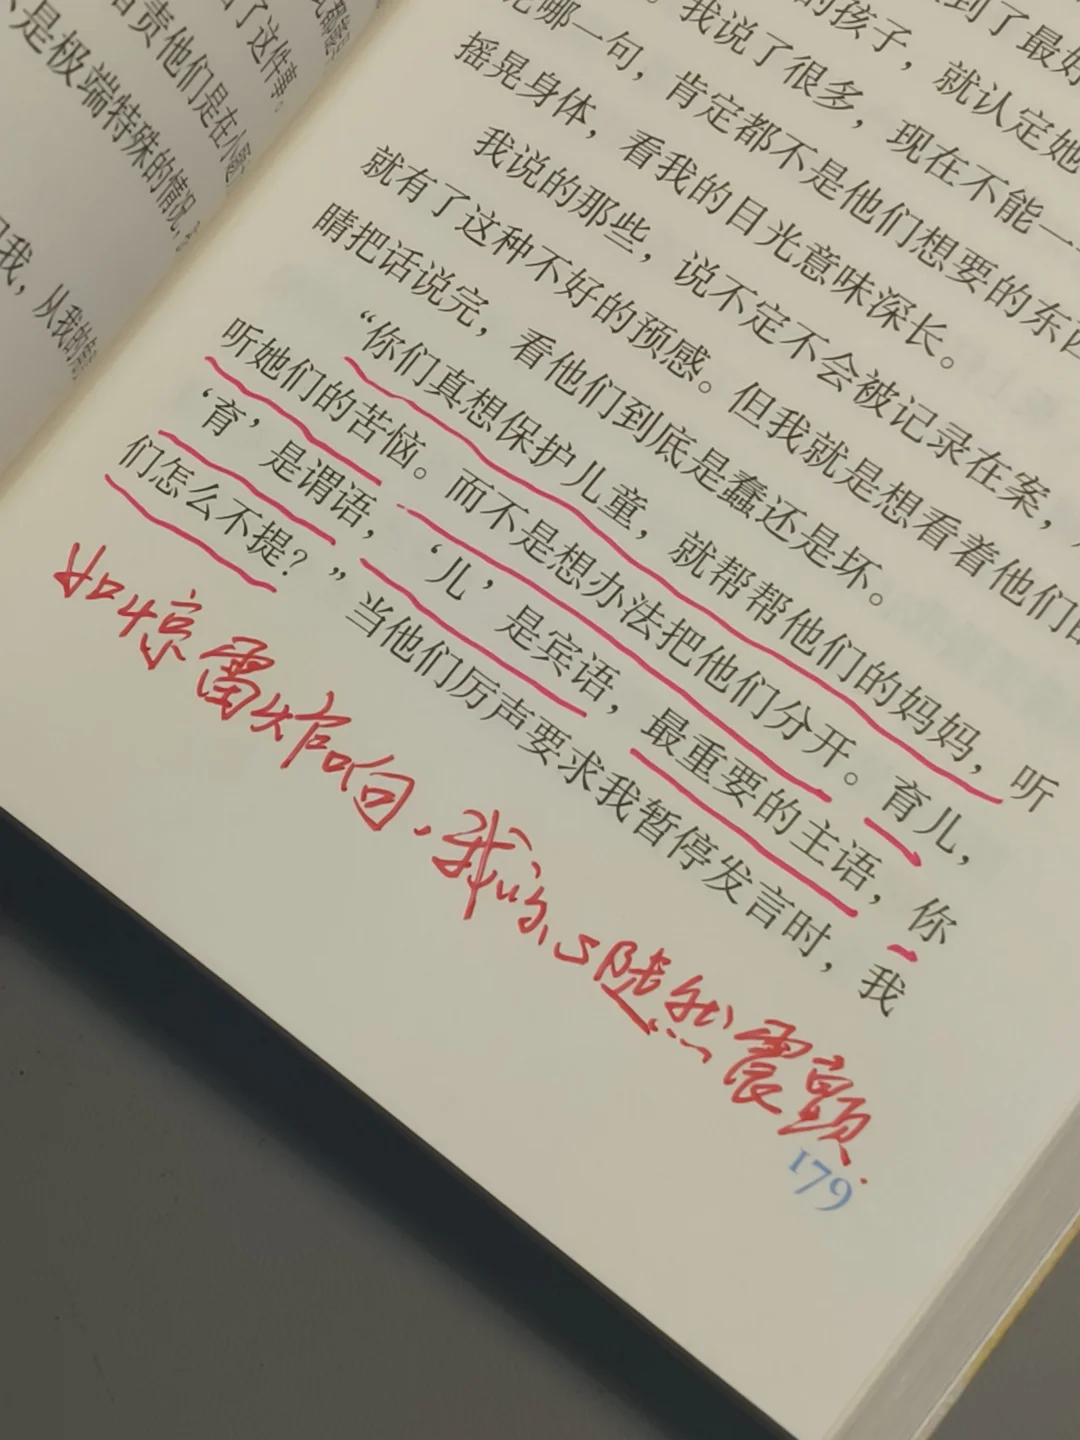 了这件事。
责他们是在小
是极端特殊的情况，
我，从我的
到了最好
的孩子，就认定她
。我说了很多，现在不能一
哪一句，肯定都不是他们想要的东西
摇晃身体，看我的目光意味深长。
我说的那些，说不定不会被记录在案，
就有了这种不好的预感。但我就是想看着他们的
睛把话说完，看他们到底是蠢还是坏。
“你们真想保护儿童，就帮帮他们的妈妈，听
听她们的苦恼。而不是想办法把他们分开。育儿，
‘育’是谓语，‘儿’是宾语，最重要的主语，你
们怎么不提？”当他们厉声要求我暂停发言时，我
如惊雷炸响，我的心陡然震颤。
179